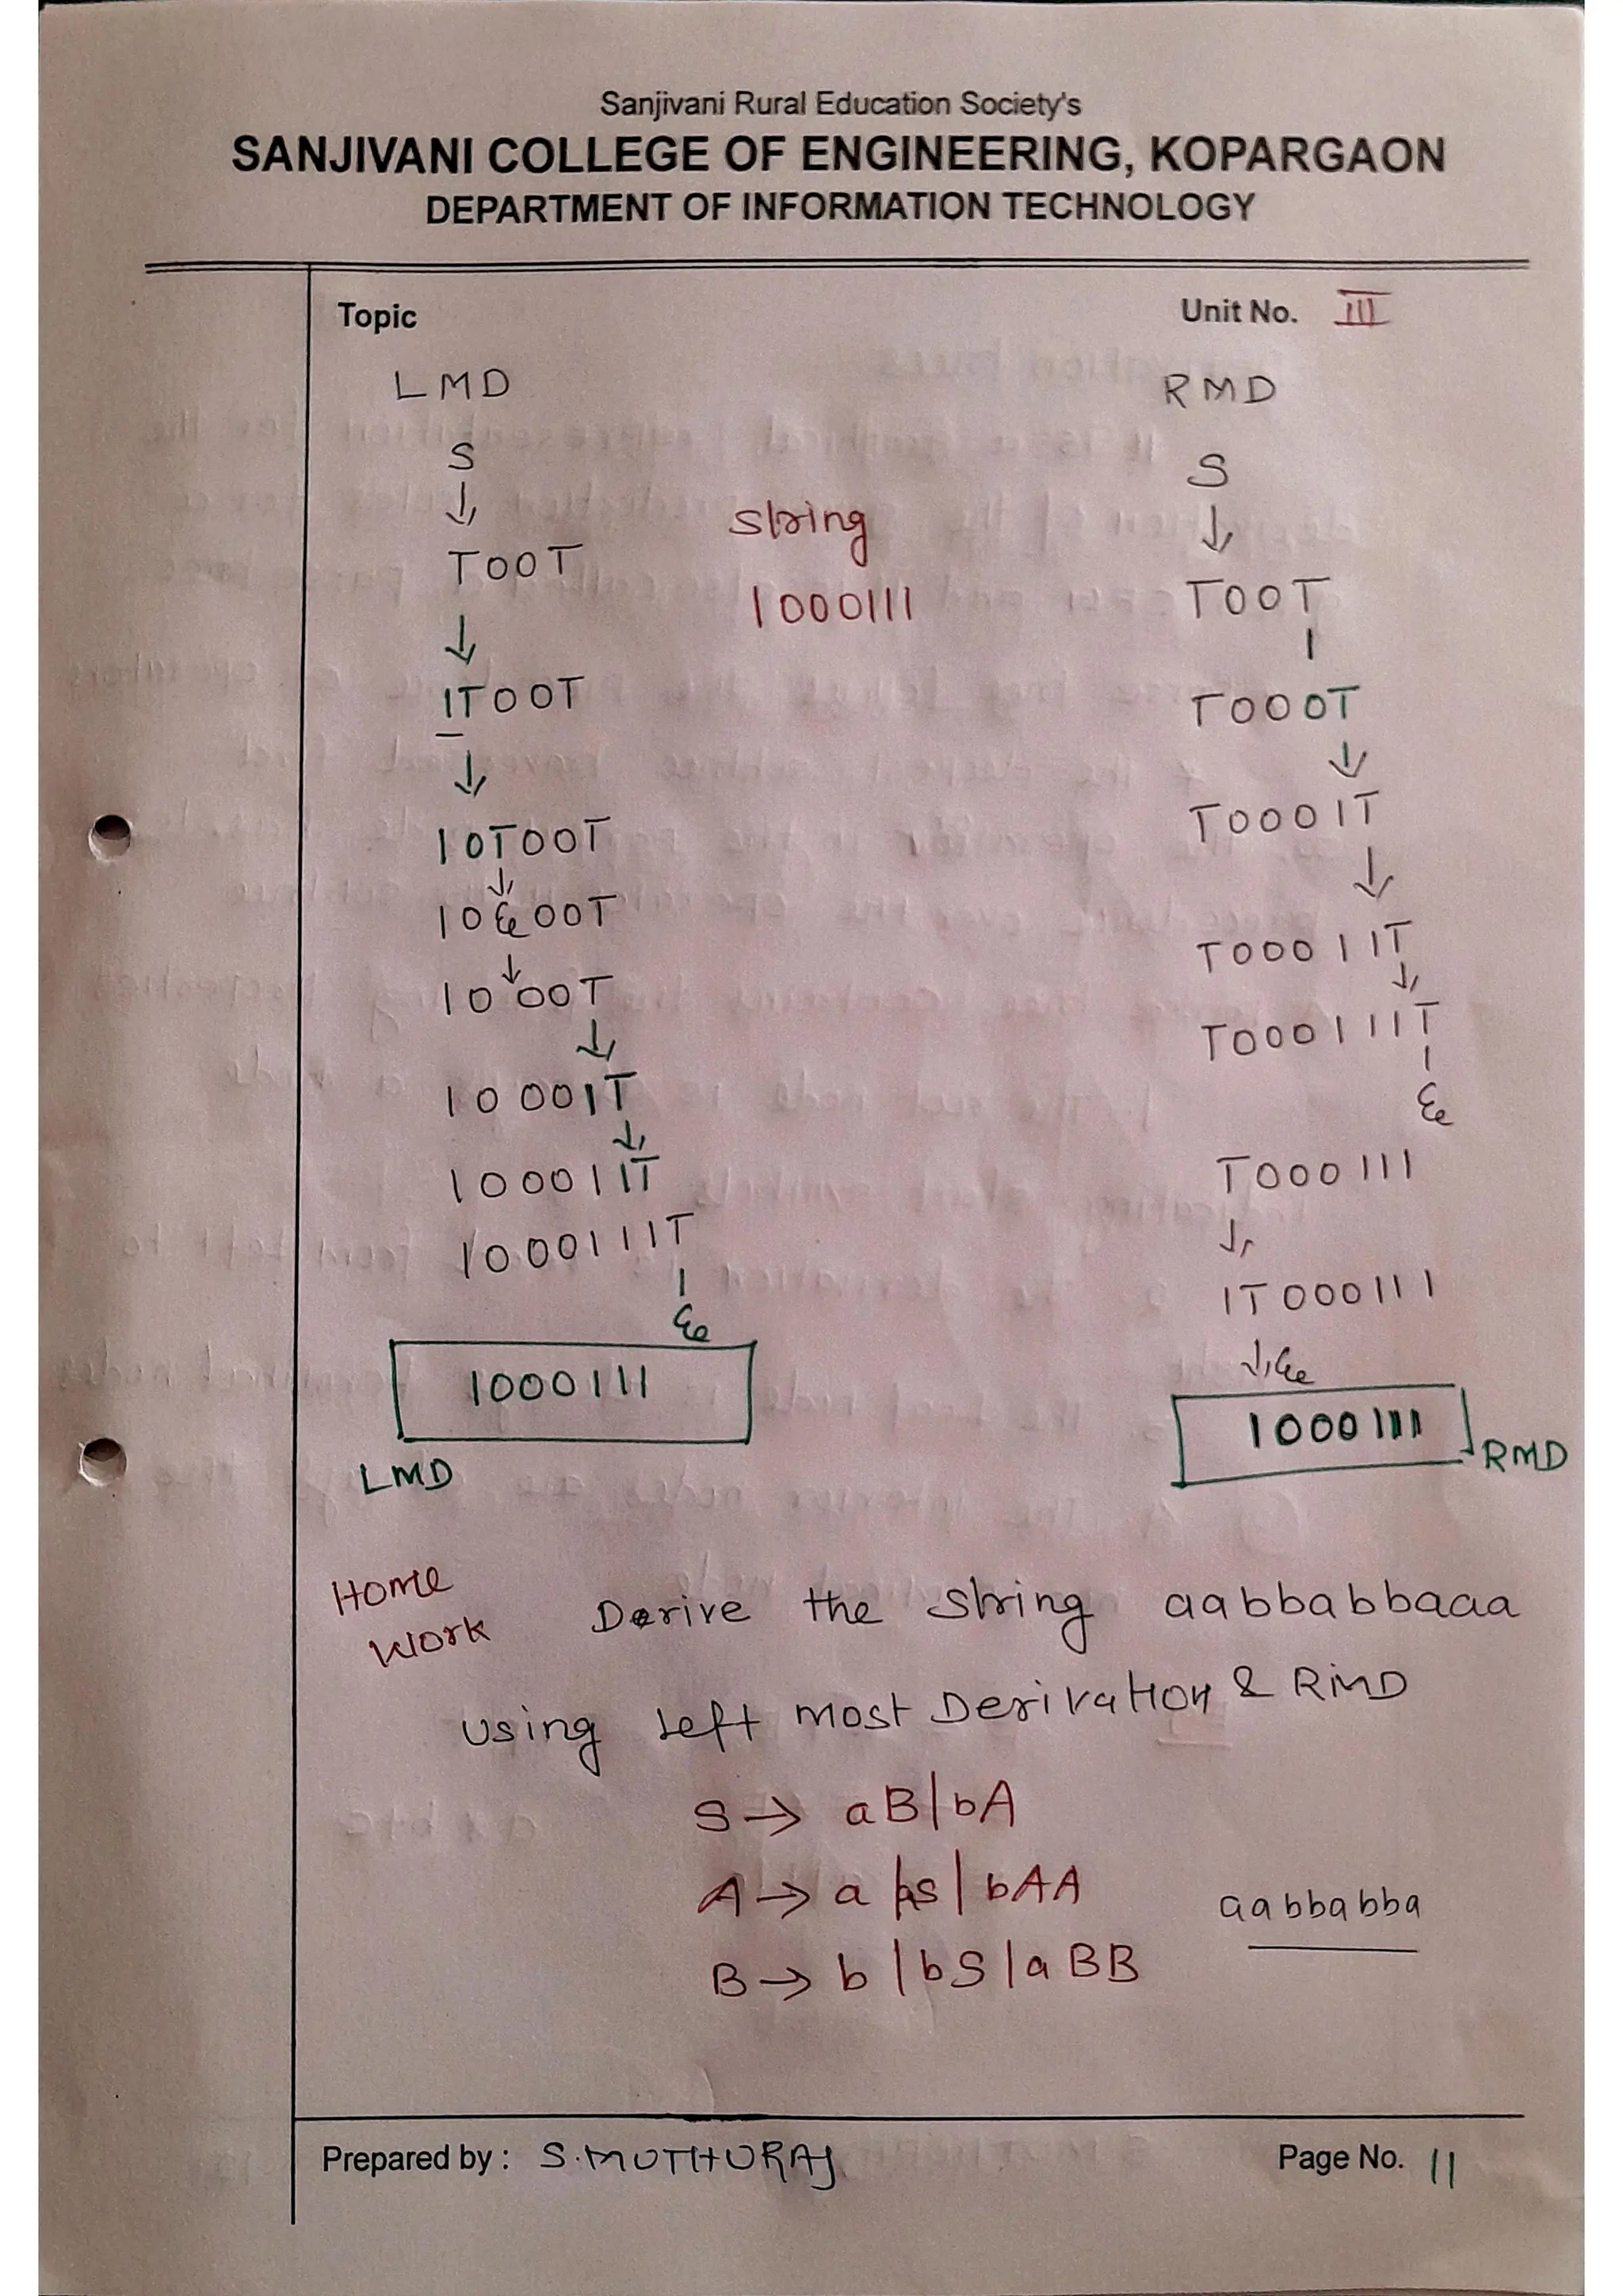 Sanjivani Rural Education Society's
SANJIVANI COLLEGE OF ENGINEERING, KOPARGAON
DEPARTMENT OF INFORMATION TECHNOLOGY
Topic
Unit No. III
LMD
S
↓
T00T
↓
1T00T
↓
10T00T
↓
10ε00T
↓
1000T
↓
10001T
↓
100011T
1000111T
|
ε
1000111
LMD
string
1000111
RMD
S
↓
T00T
|
T000T
↓
T0001T
↓
T00011T
↓
T000111T
|
ε
T000111
↓
1T000111
↓ ε
1000111
RMD
Home
Work
Derive the string aabbabbaaa
using Left most Derivation & RMD
S → aB|bA
A → a |aS| bAA
aabbabba
B → b |bS|aBB
Prepared by : S.MUTHURAJ
Page No. 11